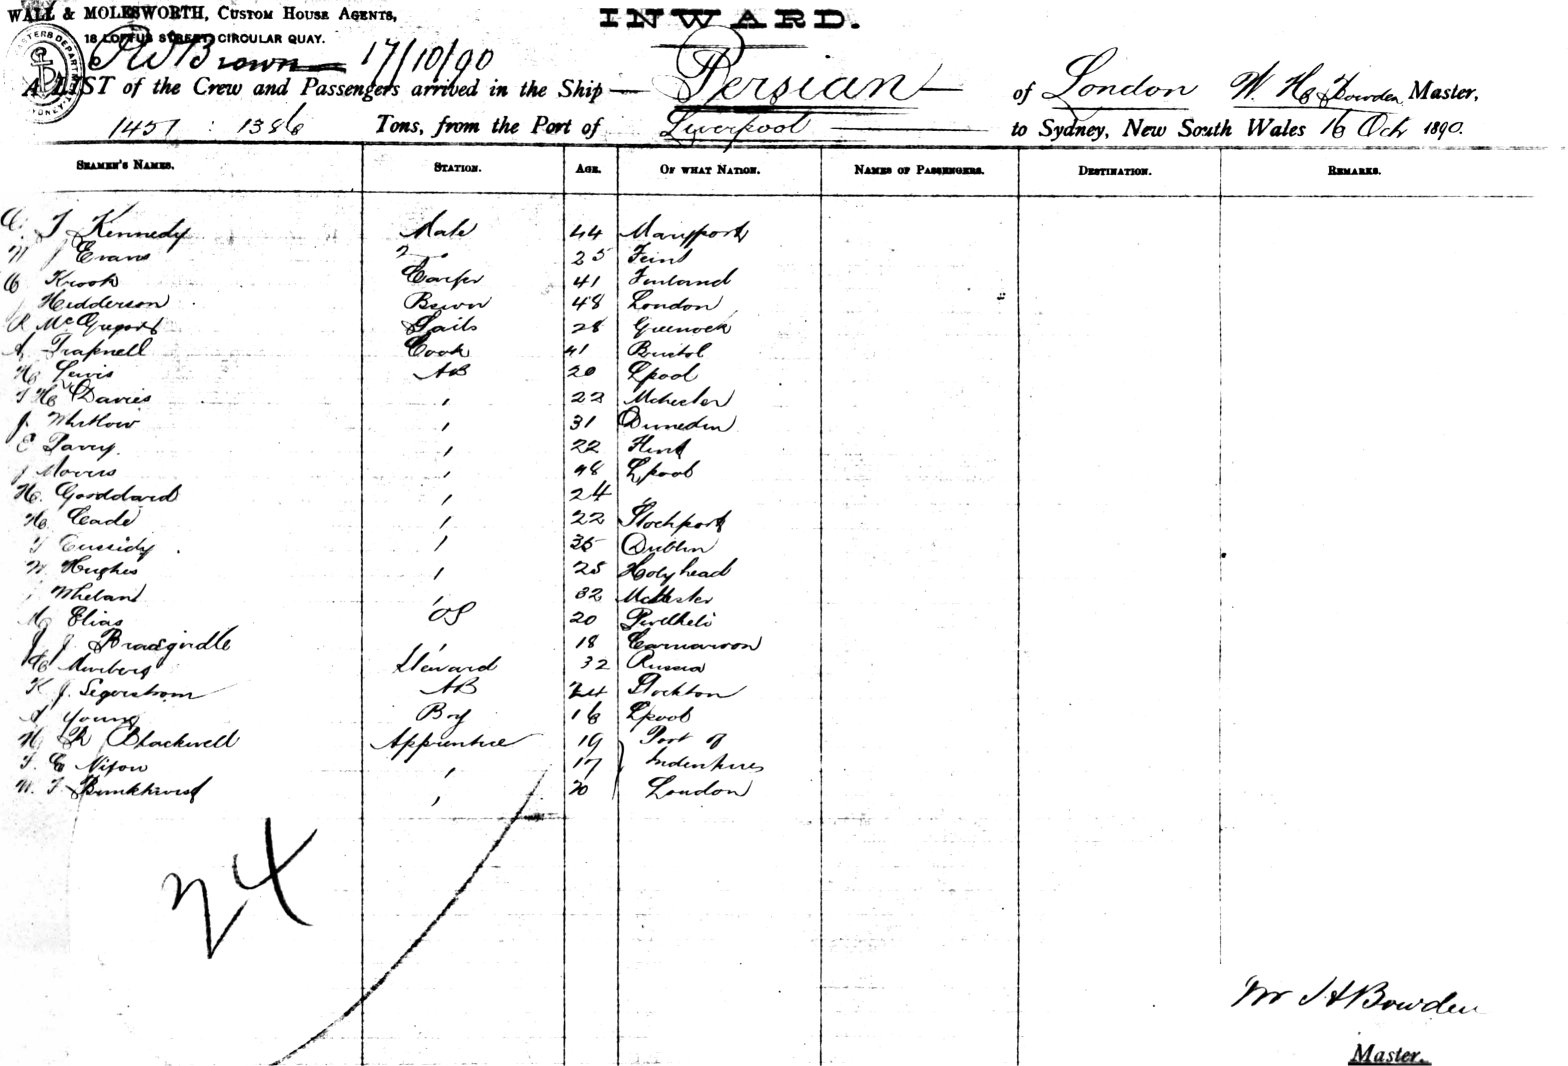 WALL & MOLESWORTH, CUSTOM HOUSE AGENTS,
18 LOFTUS STREET, CIRCULAR QUAY.
INWARD.
Brown 17/10/90
A LIST of the Crew and Passengers arrived in the Ship Persian of London W. H. Bowden Master,
1457 : 1386 Tons, from the Port of Liverpool to Sydney, New South Wales 16 Oct 1890.
SEAMEN'S NAMES. STATION. AGE. OF WHAT NATION. NAMES OF PASSENGERS. DESTINATION. REMARKS.
T Kennedy Mate 44 Maryport
J Evans 2 25
Krook 41 Finland
Hedderson 48 London
McGregor Sails 28 Greenock
A Trapnell Cook 41 Bristol
H Lewis AB 20 Lpool
T H Davies " 22 Mchester
J. Whitlow " 31 Dunedin
E Davey " 22 Flint
J Morris " 48 Lpool
H. Goddard " 24 "
H Eade " 22 Stockport
T Cassidy " 35 Dublin
W Hughes " 28 Holyhead
Whelan " 32 Mchester
Elias OS 20 Pwllheli
J J Bracegirdle " 18 Carnarvon
Steward 32 Russia
K J. Segerstrom AB 24 Stockton
A Young Boy 16 Lpool
H R Blackwell Apprentice 19 Port of
T. E Nixon " 17 Indentures
W. T " 20 London
24
Wm J H Bowden
Master.